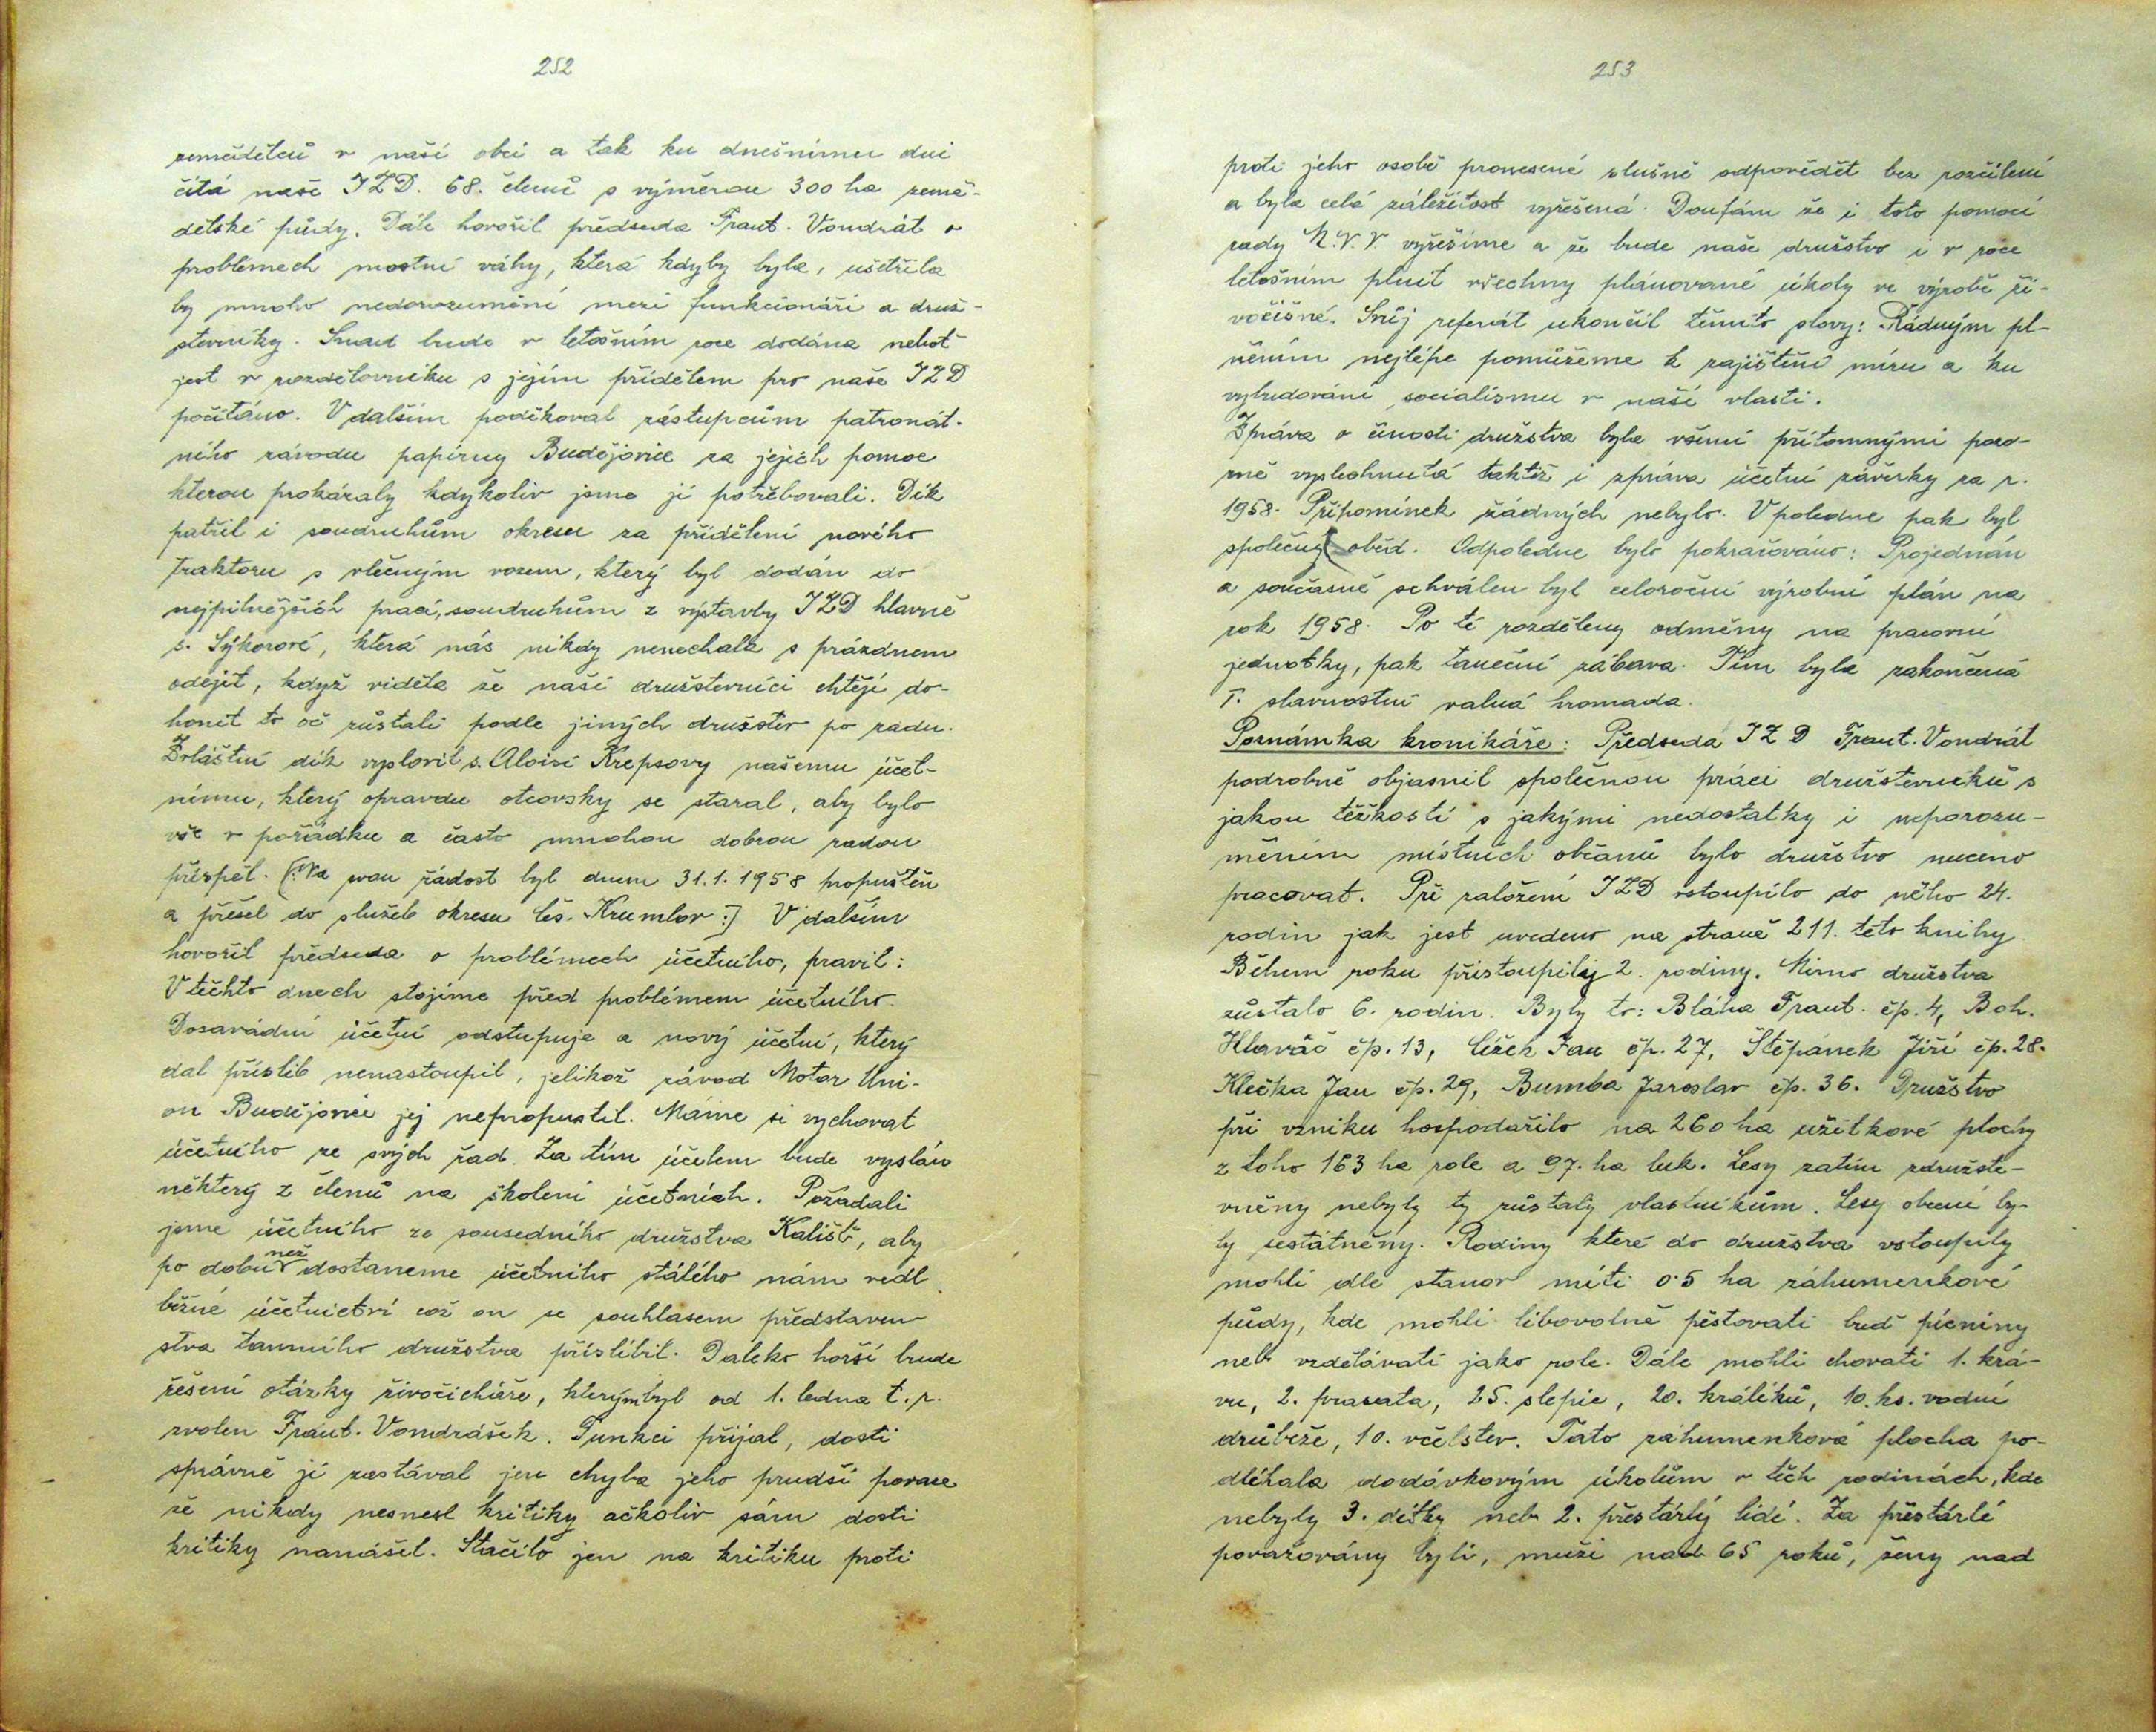 252
zemědělců v naší obci a tak ku dnešnímu dni
čítá naše JZD. 68. členů s výměrou 300 ha země-
dělské půdy. Dále hovořil předseda Frant. Vondrát o
problémech mostní váhy, která kdyby byla, ušetřila
by mnoho nedorozumění mezi funkcionáři a druž-
stevníky. Snad bude v letošním roce dodána neboť
jest v rozdělovníku s jejím přídělem pro naše JZD
počítáno. V dalším poděkoval zástupcům patronát-
ního závodu papírny Budějovice za jejich pomoc
kterou prokázaly kdykoliv jsme jí potřebovali. Dík
patřil i soudruhům okresu za přidělení nového
traktoru s vlečným vozem, který byl dodán do
nejpilnějších prací, soudruhům z výstavby JZD hlavně
s. Sýkorové, která nás nikdy nenechala s prázdnem
odejít, když viděla že naši družstevníci chtějí do-
honit to oč zůstali podle jiných družstev po zadu.
Zvláštní dík vyslovil s. Aloisi Krepsovy našemu účet-
nímu, který opravdu otcovsky se staral, aby bylo
vše v pořádku a často mnohou dobrou radou
přispěl. [:Na svou žádost byl dnem 31.1.1958 propuštěn
a přešel do služeb okresu Čes. Krumlov:] V dalším
hovořil předseda o problémech účetního, pravil:
V těchto dnech stojíme před problémem účetního.
Dosavádní účetní odstupuje a nový účetní, který
dal příslib nenastoupil, jelikož závod Motor Uni-
on Budějovice jej nepropustil. Máme si vychovat
účetního ze svých řad. Za tím účelem bude vyslán
některý z členů na školení účetních. Požádali
jsme účetního ze sousedního družstva Kaliště, aby
po dobu než dostaneme účetního stálého nám vedl
běžné účetnictví což on se souhlasem představen-
stva tamního družstva přislíbil. Daleko horší bude
řešení otázky živočicháře, kterým byl od 1. ledna t.r.
zvolen Frant. Vondrášek. Funkci přijal, dosti
správně jí zastával jen chyba jeho prudší povaze
že nikdy nesnesl kritiky ačkoliv sám dosti
kritiky nanášel. Stačilo jen na kritiku proti
253
proti jeho osobě pronesené slušně odpovědět bez rozčílení
a byla celá záležitost vyřešená. Doufám že i toto pomocí
rady M.N.V. vyřešíme a že bude naše družstvo i v roce
letošním plnit všechny plánované úkoly ve výrobě ži-
vočišné. Svůj referát ukončil těmito slovy: Řádným pl-
něním nejlépe pomůžeme k zajištění míru a ku
vybudování socialismu v naší vlasti.
Zpráva o činosti družstva byla všemi přítomnými pozo-
rně vyslechnutá taktéž i zpráva účetní závěrky za r.
1958. Připomínek žádných nebylo. V poledne pak byl
společný oběd. Odpoledne bylo pokračováno: Projednán
a současně schválen byl celoroční výrobní plán na
rok 1958. Po té rozděleny odměny na pracovní
jednotky, pak taneční zábava. Tím byla zakončená
I. slavnostní valná hromada.
Poznámka kronikáře: Předseda JZD Frant. Vondrát
podrobně objasnil společnou práci družstevníků s
jakou těžkostí s jakými nedostatky i neporozu-
měním místních občanů bylo družstvo nuceno
pracovat. Při založení JZD vstoupilo do něho 24.
rodin jak jest uvedeno na straně 211. této knihy
Během roku přistoupily 2. rodiny. Mimo družstva
zůstalo 6. rodin. Byly to: Bláha Frant. čp. 4, Boh.
Hlaváč čp. 13, Čížek Jan čp. 27, Štěpánek Jiří čp. 28.
Klečka Jan čp. 29, Bumba Jaroslav čp. 36. Družstvo
při vzniku hospodařilo na 260 ha užitkové plochy
z toho 163 ha role a 97. ha luk. Lesy zatím združste-
vněny nebyly ty zůstaly vlastníkům. Lesy obecní by-
ly sestátněny. Rodiny které do družstva vstoupily
mohli dle stanov míti 0.5 ha záhumenkové
půdy, kde mohli libovolně pěstovati buď pícniny
neb vzdělávati jako role. Dále mohli chovati 1. krá-
vu, 2. prasata, 25. slepic, 20. králíků, 10. ks. vodní
drůbeže, 10. včelstev. Tato záhumenková plocha po-
dléhala dodávkovým úkolům v těch rodinách, kde
nebyly 3. dítky neb 2. přestárlý lidé. Za přestárlé
považovány byli, muži nad 65 roků, ženy nad